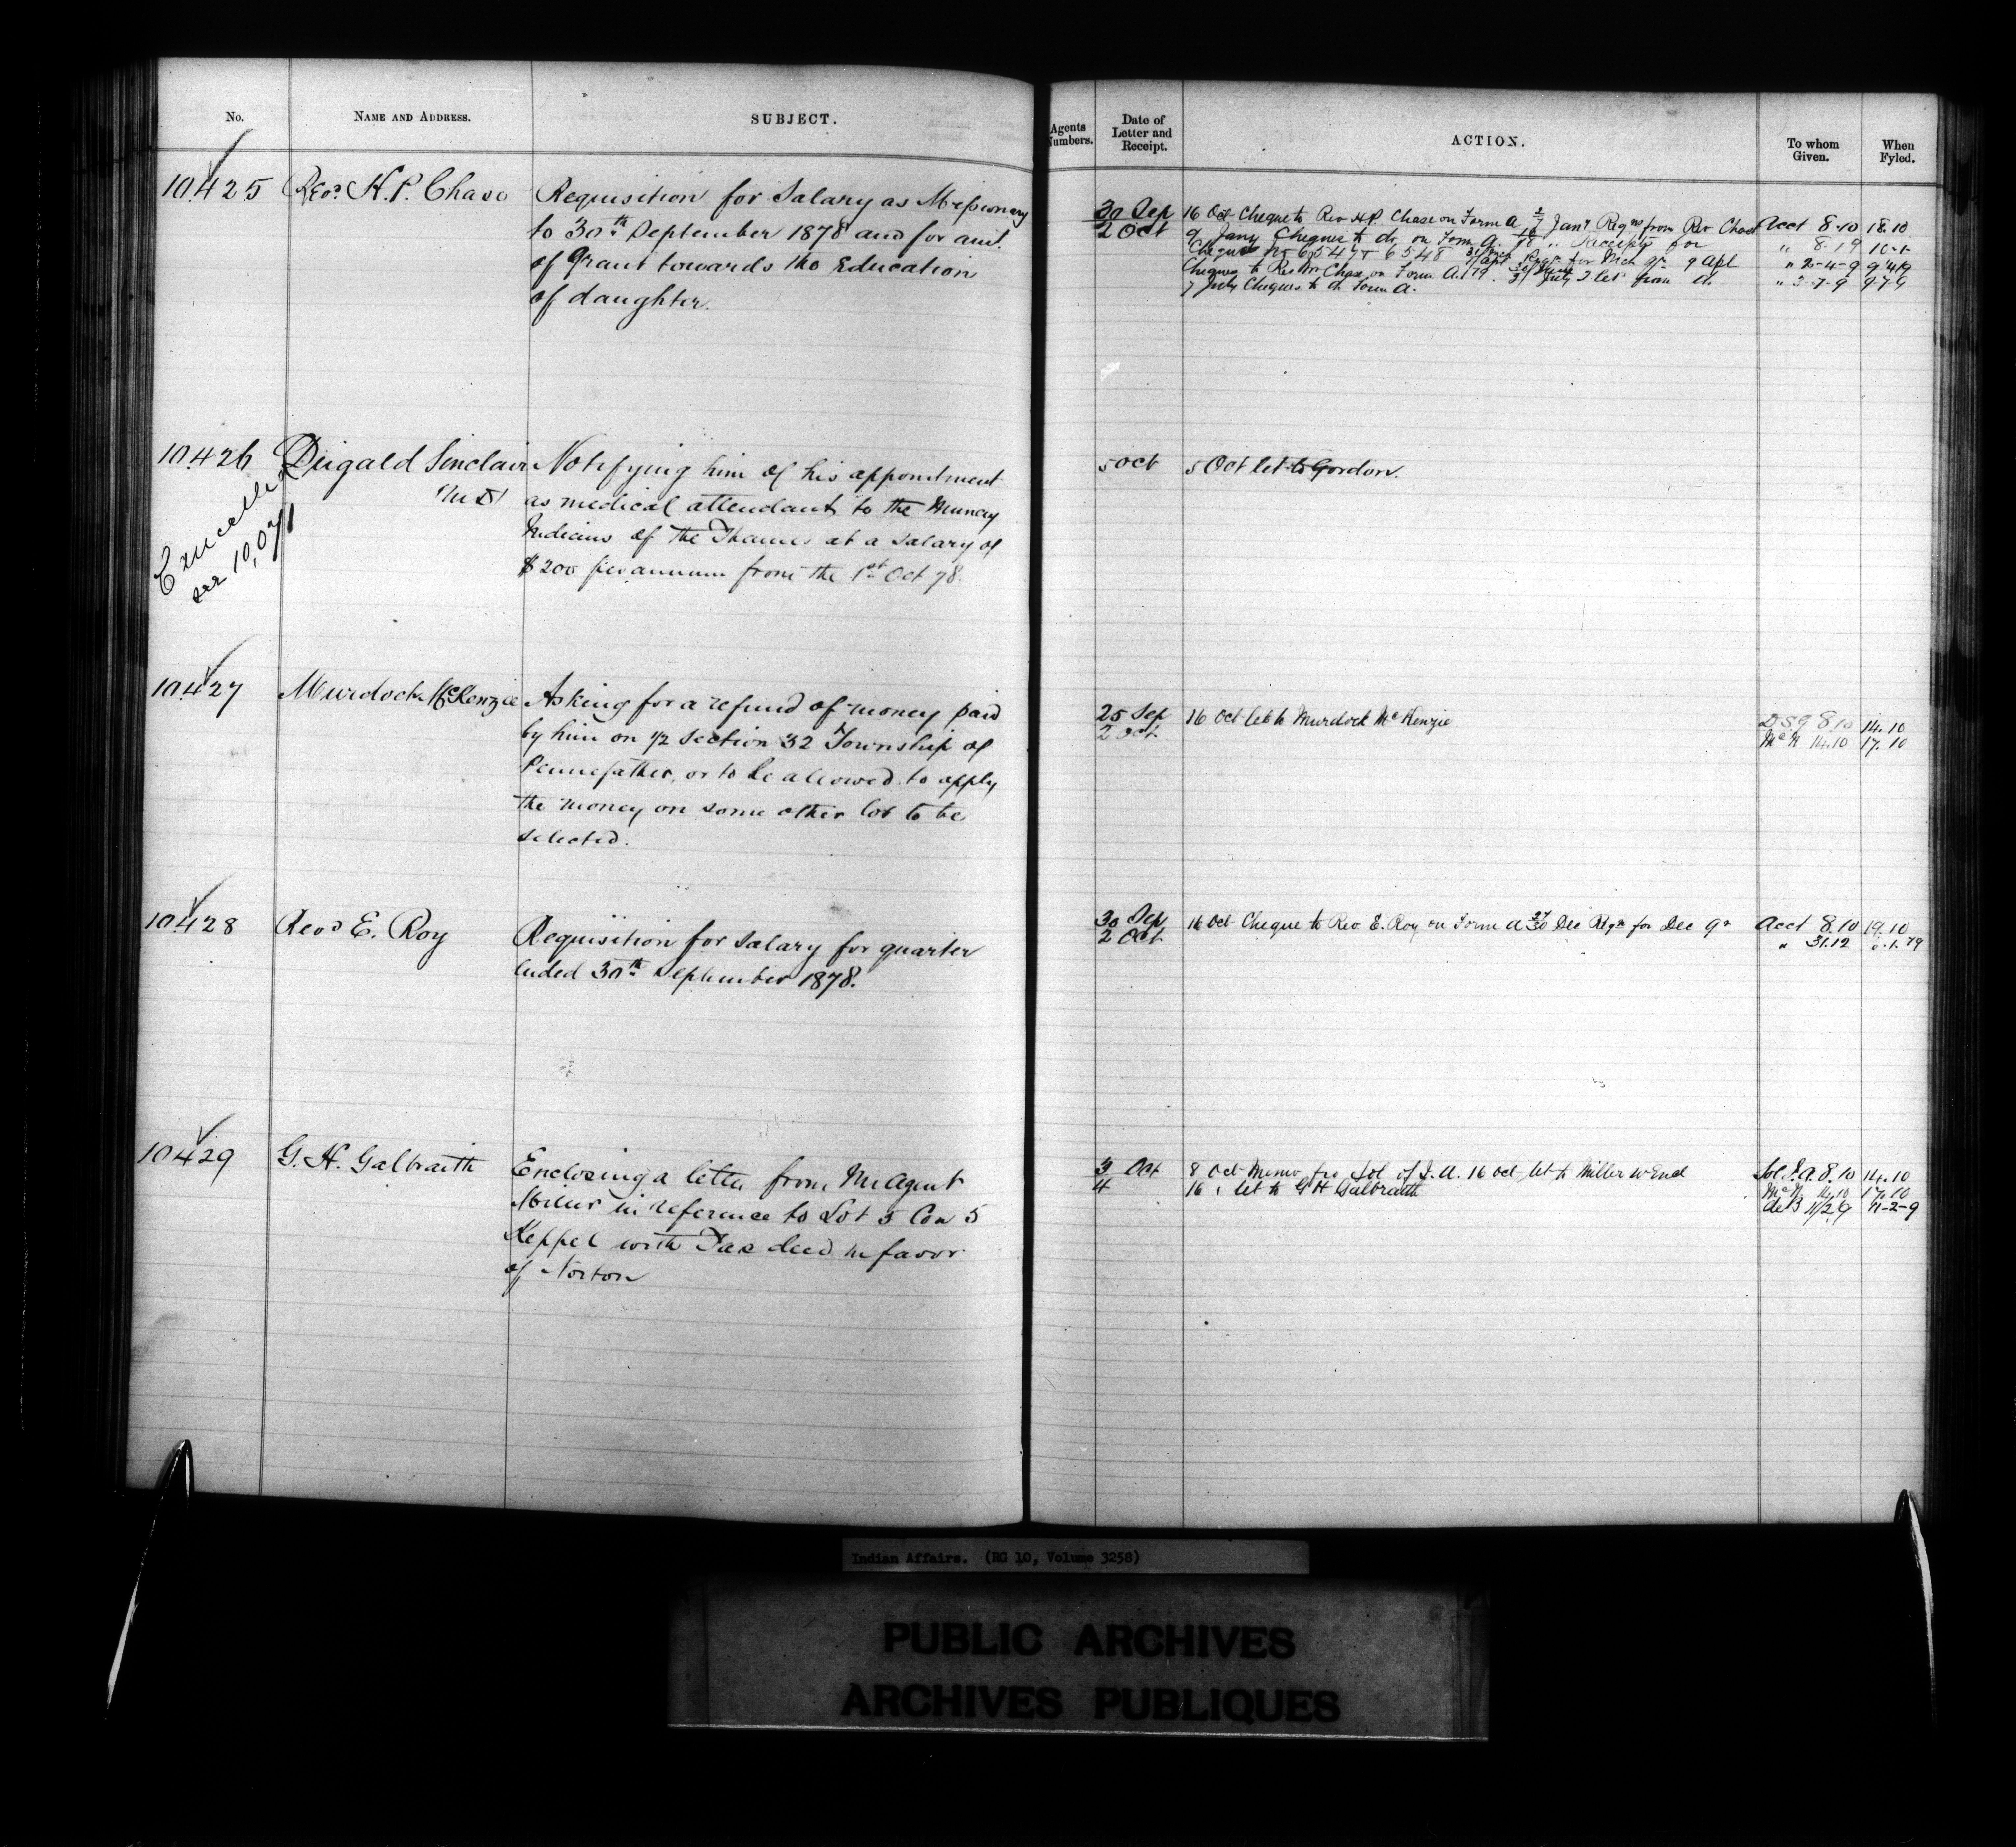 No.
NAME AND ADDRESS.
SUBJECT.
10.425
Revd. H. P. Chase
Requisition for Salary as Missionary
to 30th September 1878 and for amt.
of Grant towards the Education
of daughter.
10.426
Dugald Sinclair
M D
Cancelled
see 10,071
Notifying him of his appointment
as medical attendant to the Muncey
Indians of the Thames at a salary of
$200 per annum from the 1st Oct 78.
10.427
Murdock McKenzie
Asking for a refund of money paid
by him on 1/2 Section 32 Township of
Pennefather, or to be allowed to apply
the money on some other lot to be
selected.
10.428
Revd E. Roy
Requisition for salary for quarter
ended 30th September 1878.
10.429
G. H. Galbraith
Enclosing a letter from Mr Agent
Miller in reference to Lot 5 Con 5
Keppel with Tax deed in favor
of Norton
Agents Numbers.
Date of Letter and Receipt.
ACTION.
To whom Given.
When Fyled.
30 Sep
2 Oct
16 Oct Cheque to Rev H P. Chase on Form A Jany Reqns from Rev Chase Acct 8.10 18.10
9 Jany Cheques to do on Form A. 18 " Receipts for " 8.1.9 10.1
Cheques No 6547 + 6548 Reqn for Mch qr 9 Apl " 2-4-9 9.4.79
Cheques to Rev Mr Chase on Form A. 79. July 2 let from do. " 3-7-9 9-7-9
7 July Cheques to do Form A.
5 Oct
5 Oct let to Gordon.
25 Sep
2 Oct
16 Oct let to Murdock McKenzie
DSG 8.10 14.10
McN 14.10 17.10
30 Sep
2 Oct
16 Oct Cheque to Rev E. Roy on Form A 27/30 Dec Reqn for Dec qr Acct 8.10 19.10
" 31.12 1.79
3 Oct
4
8 Oct Memo for Sol of I. A. 16 Oct let to Miller W End Sol I.A. 8.10 14.10
16 " let to G H Galbraith McN. 14.10 17.10
de B 11/2.9 11-2-9
Indian Affairs. (RG 10, Volume 3258)
PUBLIC ARCHIVES
ARCHIVES PUBLIQUES